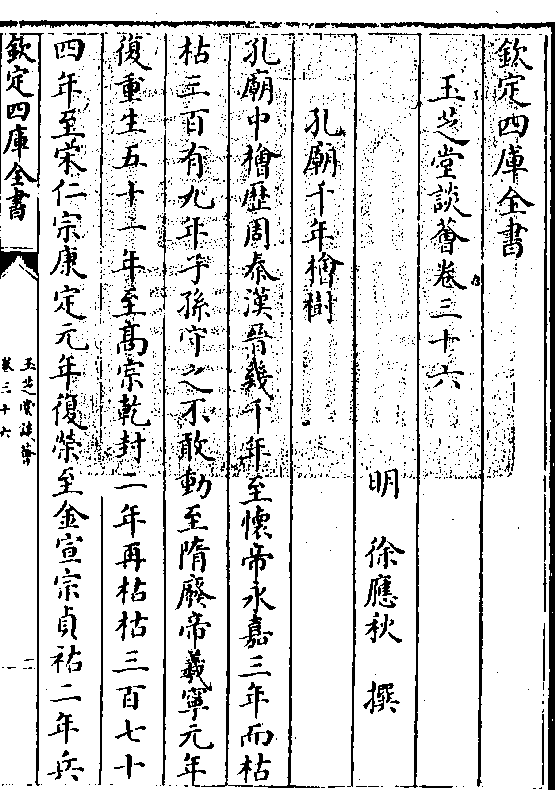 欽定四庫全書
玉芝堂談薈卷三十六
明 徐應秋 撰
孔廟千年檜樹
孔廟中檜歴周秦漢晉幾千年至懷帝永嘉三年而枯
枯三百有九年子孫守之不敢動至隋廢帝義寧元年
復重生五十一年至髙宗乾封二年再枯枯三百七十
四年至宋仁宗康定元年復榮至金宣宗貞祐二年兵
欽定四庫全書
玉芝堂談薈
卷三十六